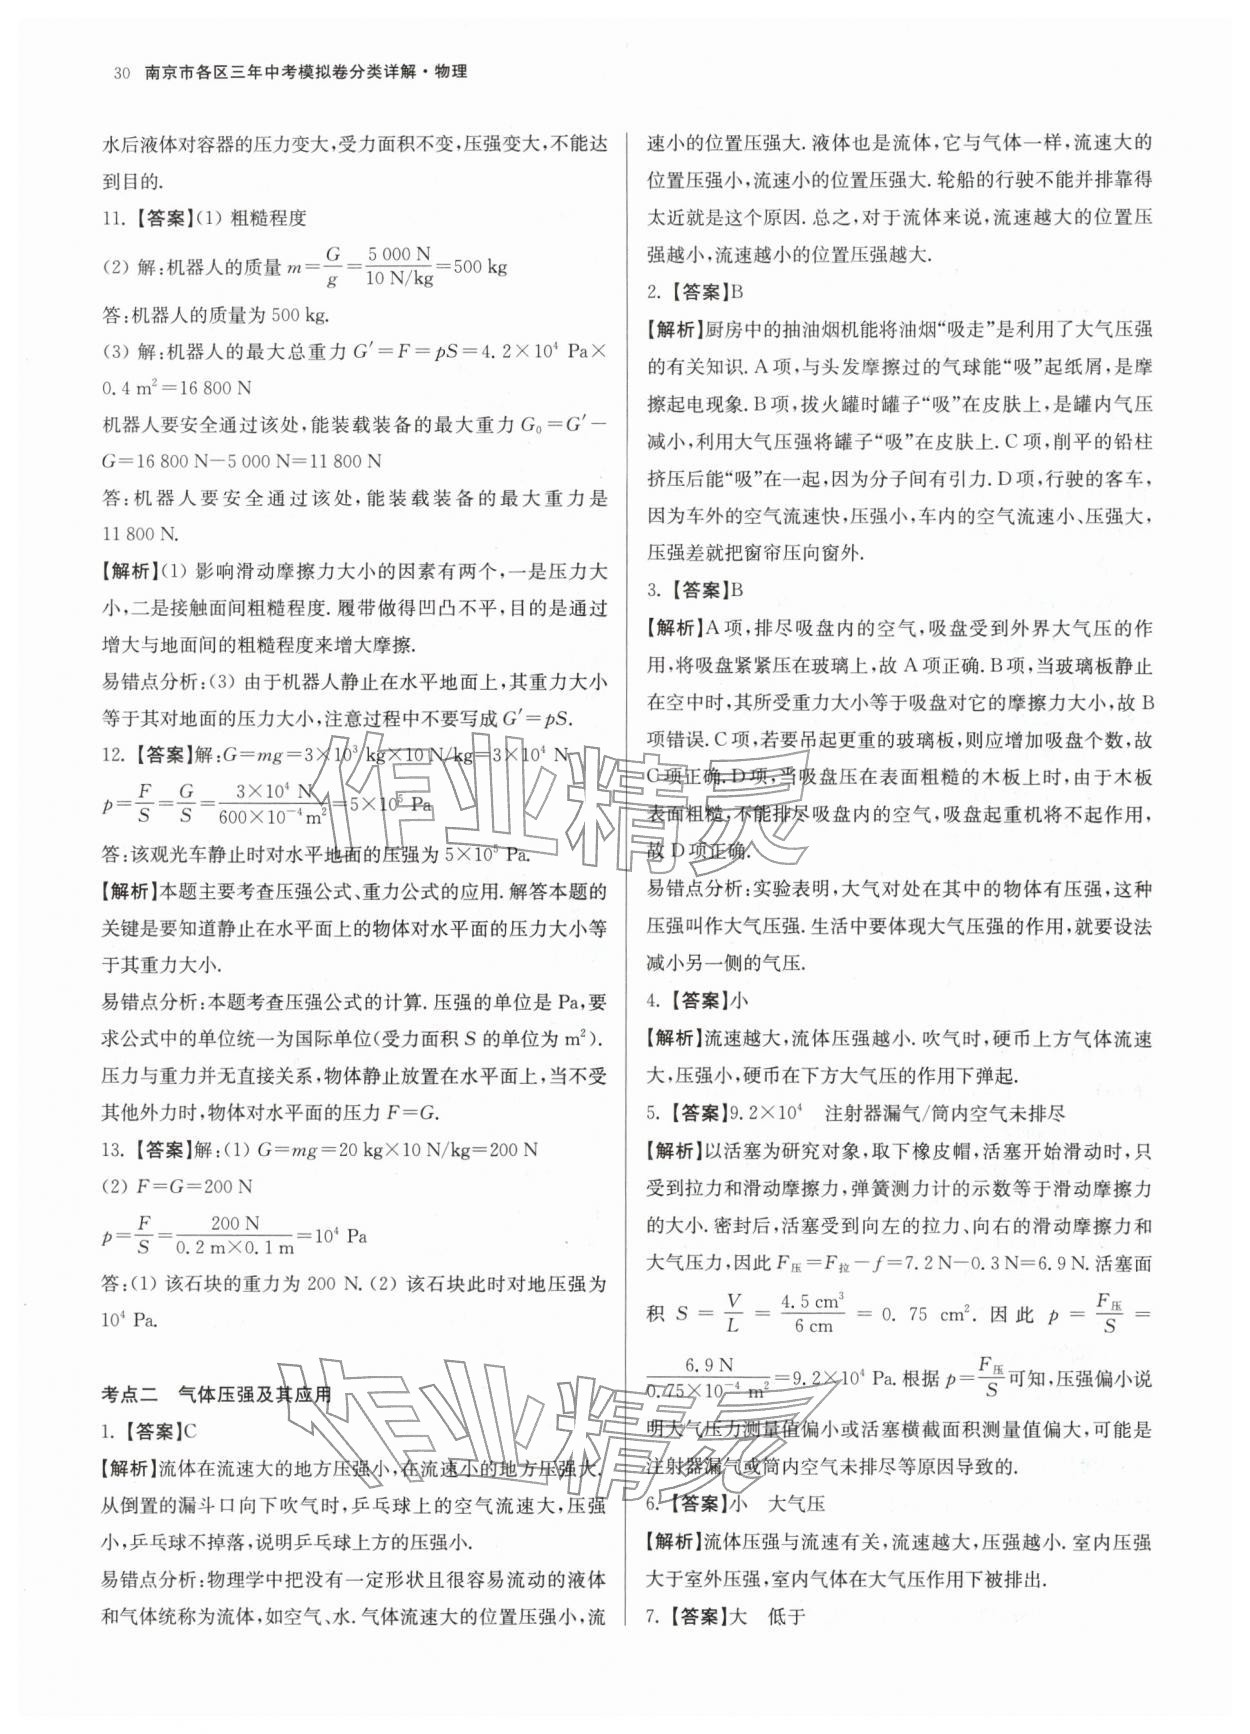 30 南京市各区三年中考模拟卷分类详解·物理
水后液体对容器的压力变大,受力面积不变,压强变大,不能达
到目的.
11. 【答案】(1) 粗糙程度
(2) 解:机器人的质量 m=G/g=5 000 N/10 N/kg=500 kg
答:机器人的质量为 500 kg.
(3) 解:机器人的最大总重力 G′=F=pS=4.2×10⁴ Pa×
0.4 m²=16 800 N
机器人要安全通过该处,能装载装备的最大重力 G₀=G′-
G=16 800 N-5 000 N=11 800 N
答:机器人要安全通过该处,能装载装备的最大重力是
11 800 N.
【解析】(1) 影响滑动摩擦力大小的因素有两个,一是压力大
小,二是接触面间粗糙程度. 履带做得凹凸不平,目的是通过
增大与地面间的粗糙程度来增大摩擦.
易错点分析:(3) 由于机器人静止在水平地面上,其重力大小
等于其对地面的压力大小,注意过程中不要写成 G′=pS.
12. 【答案】解:G=mg=3×10³ kg×10 N/kg=3×10⁴ N
p=F/S=G/S=3×10⁴ N/600×10⁻⁴ m²=5×10⁵ Pa
答:该观光车静止时对水平地面的压强为 5×10⁵ Pa.
【解析】本题主要考查压强公式、重力公式的应用. 解答本题的
关键是要知道静止在水平面上的物体对水平面的压力大小等
于其重力大小.
易错点分析:本题考查压强公式的计算. 压强的单位是 Pa,要
求公式中的单位统一为国际单位(受力面积 S 的单位为 m²).
压力与重力并无直接关系,物体静止放置在水平面上,当不受
其他外力时,物体对水平面的压力 F=G.
13. 【答案】解:(1) G=mg=20 kg×10 N/kg=200 N
(2) F=G=200 N
p=F/S=200 N/0.2 m×0.1 m=10⁴ Pa
答:(1) 该石块的重力为 200 N. (2) 该石块此时对地压强为
10⁴ Pa.
考点二 气体压强及其应用
1. 【答案】C
【解析】流体在流速大的地方压强小,在流速小的地方压强大.
从倒置的漏斗口向下吹气时,乒乓球上的空气流速大,压强
小,乒乓球不掉落,说明乒乓球上方的压强小.
易错点分析:物理学中把没有一定形状且很容易流动的液体
和气体统称为流体,如空气、水. 气体流速大的位置压强小,流
速小的位置压强大. 液体也是流体,它与气体一样,流速大的
位置压强小,流速小的位置压强大. 轮船的行驶不能并排靠得
太近就是这个原因. 总之,对于流体来说,流速越大的位置压
强越小,流速越小的位置压强越大.
2. 【答案】B
【解析】厨房中的抽油烟机能将油烟“吸走”是利用了大气压强
的有关知识. A 项,与头发摩擦过的气球能“吸”起纸屑,是摩
擦起电现象. B 项,拔火罐时罐子“吸”在皮肤上,是罐内气压
减小,利用大气压强将罐子“吸”在皮肤上. C 项,削平的铅柱
挤压后能“吸”在一起,因为分子间有引力. D 项,行驶的客车,
因为车外的空气流速快,压强小,车内的空气流速小、压强大,
压强差就把窗帘压向窗外.
3. 【答案】B
【解析】A 项,排尽吸盘内的空气,吸盘受到外界大气压的作
用,将吸盘紧紧压在玻璃上,故 A 项正确. B 项,当玻璃板静止
在空中时,其所受重力大小等于吸盘对它的摩擦力大小,故 B
项错误. C 项,若要吊起更重的玻璃板,则应增加吸盘个数,故
C 项正确. D 项,当吸盘压在表面粗糙的木板上时,由于木板
表面粗糙,不能排尽吸盘内的空气,吸盘起重机将不起作用,
故 D 项正确.
易错点分析:实验表明,大气对处在其中的物体有压强,这种
压强叫作大气压强. 生活中要体现大气压强的作用,就要设法
减小另一侧的气压.
4. 【答案】小
【解析】流速越大,流体压强越小. 吹气时,硬币上方气体流速
大,压强小,硬币在下方大气压的作用下弹起.
5. 【答案】9.2×10⁴ 注射器漏气/筒内空气未排尽
【解析】以活塞为研究对象,取下橡皮帽,活塞开始滑动时,只
受到拉力和滑动摩擦力,弹簧测力计的示数等于滑动摩擦力
的大小. 密封后,活塞受到向左的拉力、向右的滑动摩擦力和
大气压力,因此 F压=F拉-f=7.2 N-0.3 N=6.9 N. 活塞面
积 S=V/L=4.5 cm³/6 cm=0.75 cm². 因此 p=F压/S=
6.9 N/0.75×10⁻⁴ m²=9.2×10⁴ Pa. 根据 p=F压/S可知,压强偏小说
明大气压力测量值偏小或活塞横截面积测量值偏大,可能是
注射器漏气或筒内空气未排尽等原因导致的.
6. 【答案】小 大气压
【解析】流体压强与流速有关,流速越大,压强越小. 室内压强
大于室外压强,室内气体在大气压作用下被排出.
7. 【答案】大 低于
作业精灵
作业精灵